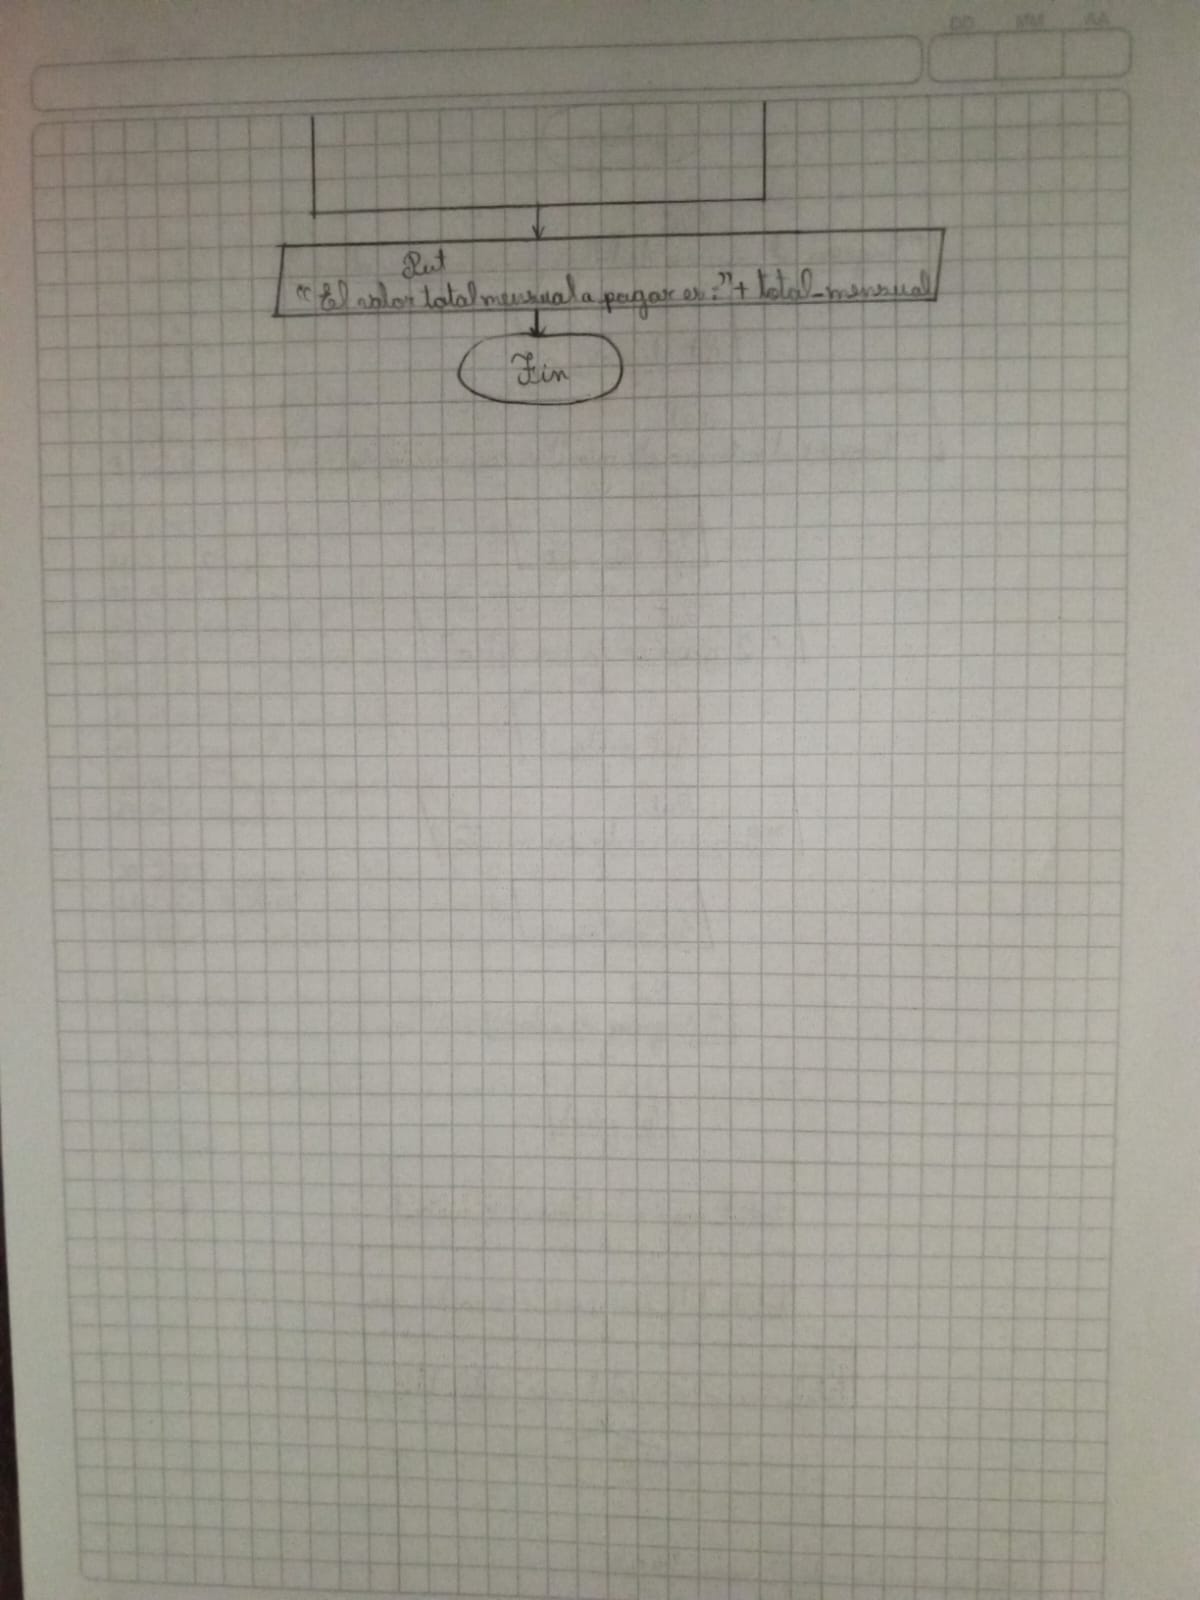 DD MM AA
Put
"El valor total mensual a pagar es:" + total_mensual
Fin